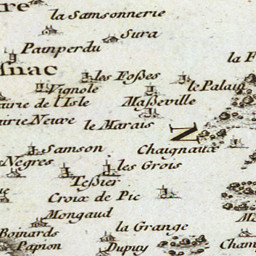 re
la Samsonnerie
Sura
Painperdu
snac
la F
les Foſses
le Palais
Vignole
airie de l'Isle
Maſseville
airie Neuve
le Marais
N
Chaignaux
Samson
Negres
les Grois
Teſsier
Croix de Pic
Mongaud
la Grange
Boinards
Papion
Dupuy
Cham